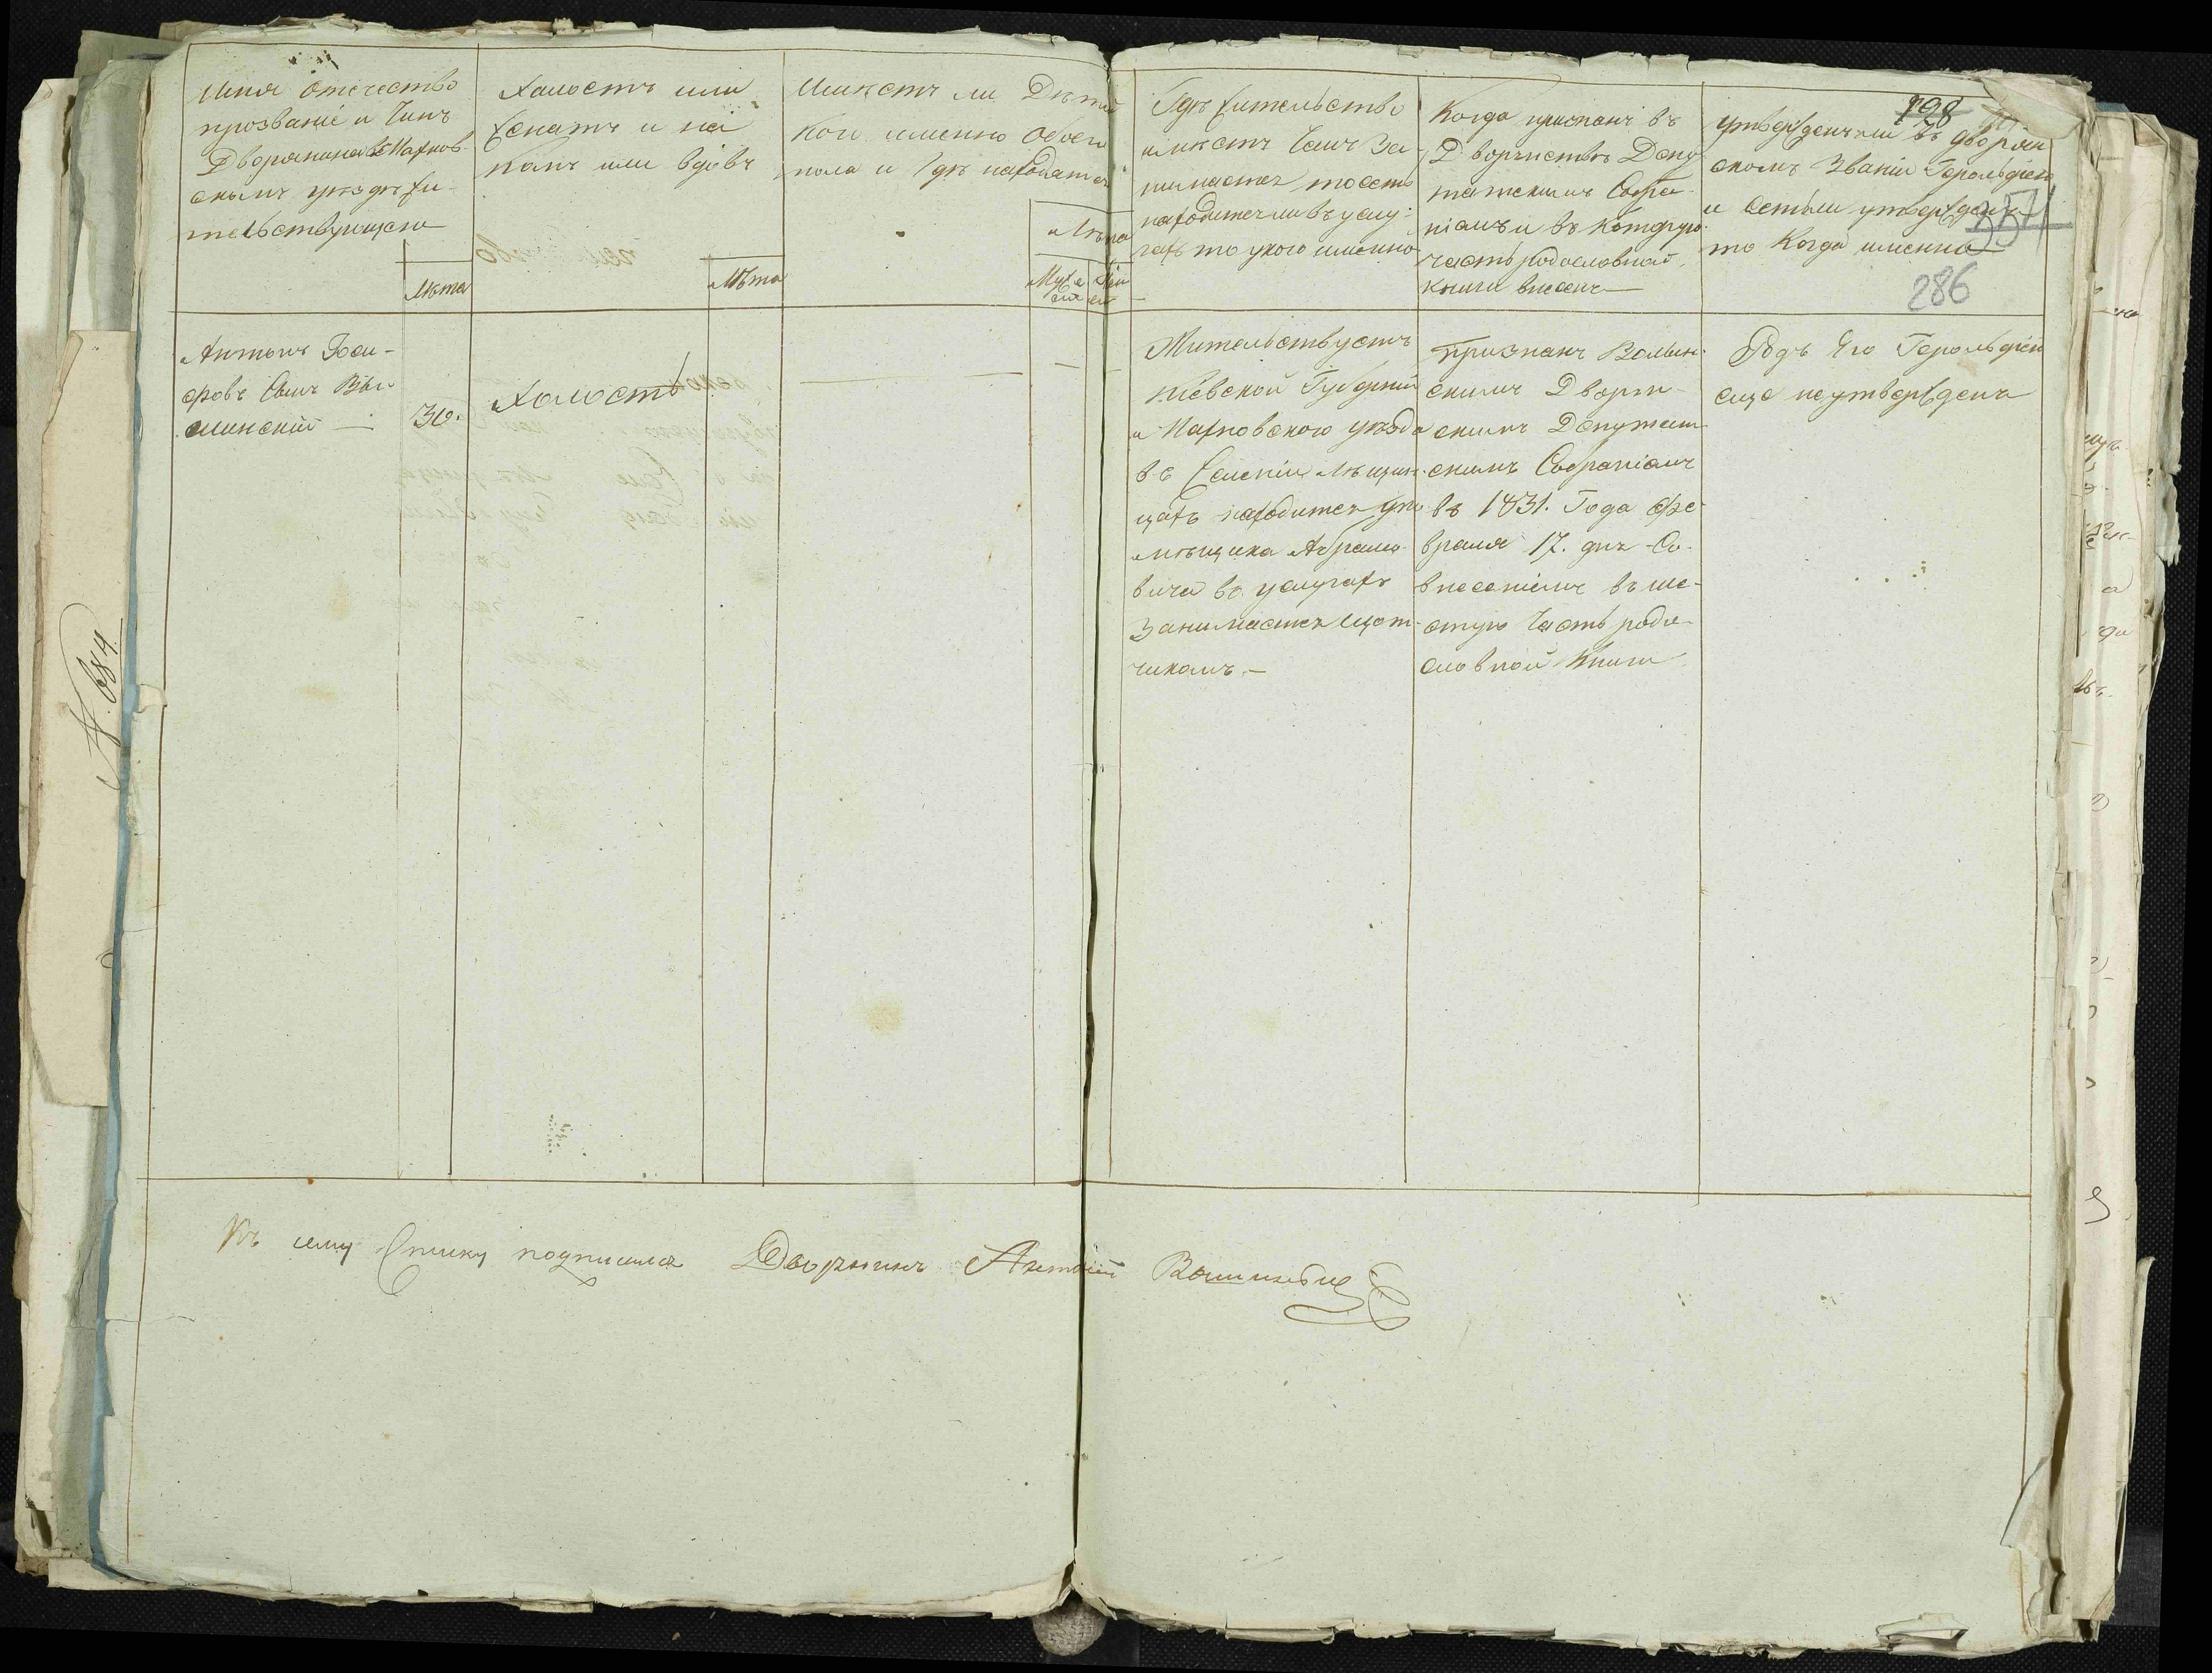 Имя Отчество
прозваніе и Чинъ
Дворянина въ Махнов-
скомъ уѣздѣ жи-
тельствующаго
Лѣта
Холостъ или
женатъ и на
комъ или вдовъ
Лѣта
Имѣетъ ли Дѣтей
кого именно обоего
пола и гдѣ находятся
Лѣта
Муже
ска
Жен
ска
Гдѣ жительство
имѣетъ Чемъ за-
нимается то есть
находится ли въ услу-
гахъ то у кого именно
Когда признанъ въ
Дворянствѣ Депу
татскимъ Собра-
ніемъ и въ которую
часть родословной
книги внесенъ —
198
утвержденъ ли въ дворян
скомъ Званіи Герольдіею
и естьли утвержденъ
то когда именно
351
286
Антонъ Іоси-
фовъ Сынъ Вы
шинскій —
30.
Холостъ
Жительствуетъ
Кіевской Губерніи
Махновского уѣзда
въ Селеніи
цахъ находится у по
мѣщика Абрамо-
вича въ услугахъ
Занимается щот-
чикомъ. —
признанъ Волын-
скимъ Дворян-
скимъ Депутат-
скимъ Собраніемъ
въ 1831. Года фе-
враля 17. дня Со
внесеніемъ въ ше-
стую Часть родо-
словной Книги
Родъ Его Герольдіею
еще неутвержденъ
№. 684.
Къ сему Списку подписался Дворянинъ Антоній